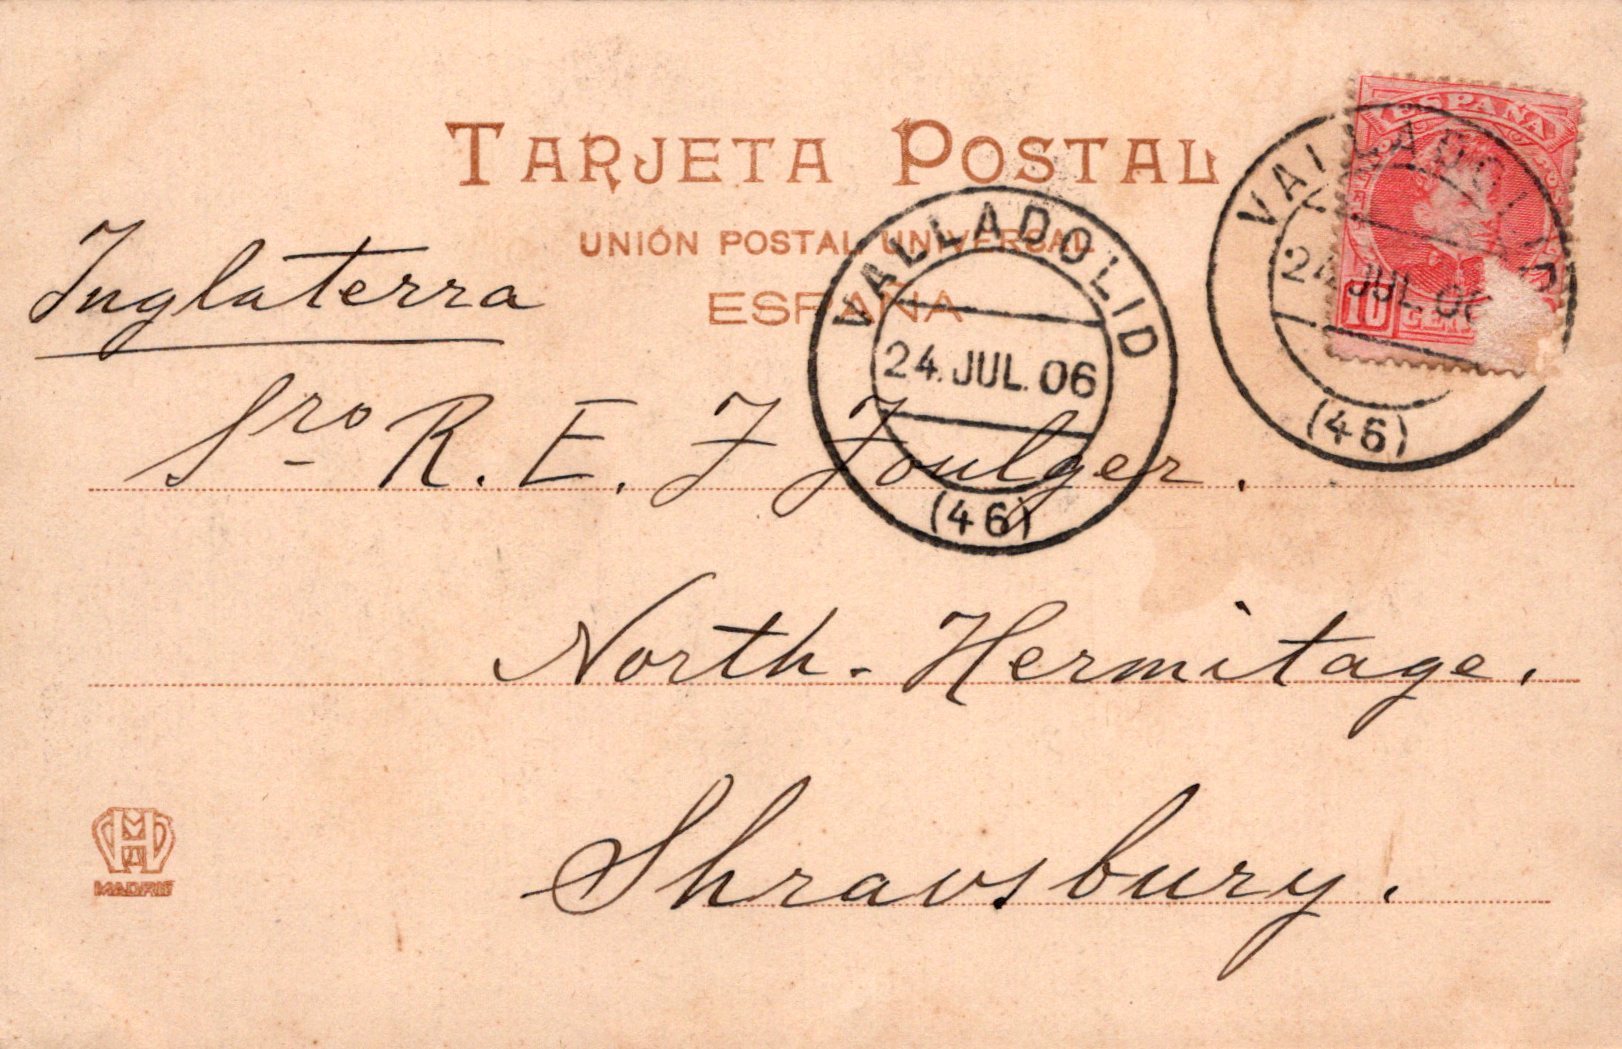 TARJETA POSTAL
UNIÓN POSTAL UNIVERSAL
ESPAÑA
ESPAÑA
10 CENT
VALLADOLID
24 JUL. 06
(46)
VALLADOLID
24. JUL. 06
(46)
Inglaterra
Sro R. E. J Foulger.
North-Hermitage.
Shravsbury.
MADRID